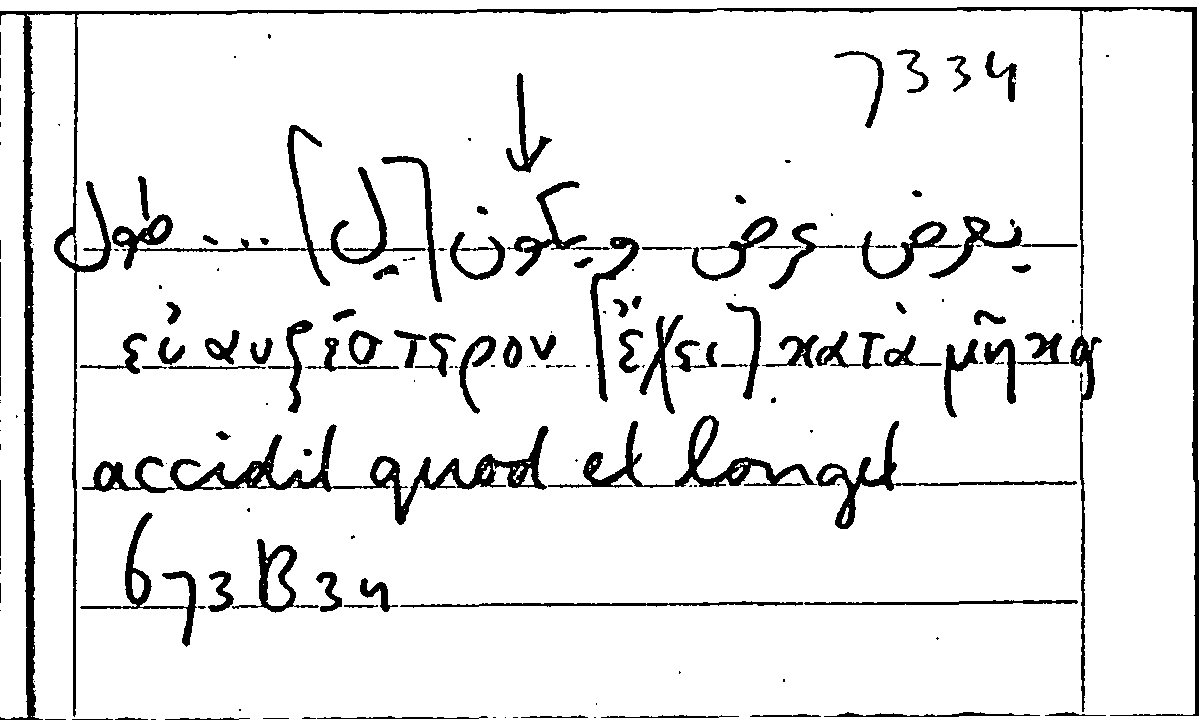 7334
↓
يعرض عرض ويكون [ل] ... طول
εὐαυξέστερον [ἔχει] κατὰ μῆκος
accidit quod et longet
673B34